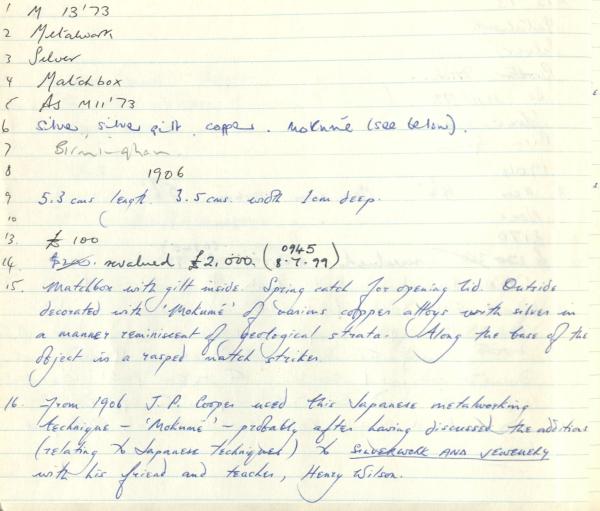 1 M 13'73
2 Metalwork
3 Silver
4 Matchbox
5 As M11'73
6 Silver, silver gilt, copper. Mokumé (see below).
7 Birmingham
8 1906
9 5.3 cms length. 3.5 cms. width 1 cm deep.
10
13. £ 100
14. revalued £2,000. (0945 8.7.99)
15. Matchbox with gilt inside. Spring catch for opening lid. Outside
decorated with 'Mokumé' of various copper alloys with silver in
a manner reminiscent of geological strata. Along the base of the
object is a rasped match striker.
16. From 1906 J. P. Cooper used this Japanese metalworking
technique - 'Mokumé' - probably after having discussed the additions
(relating to Japanese techniques) to SILVERWORK AND JEWELLERY
with his friend and teacher, Henry Wilson.